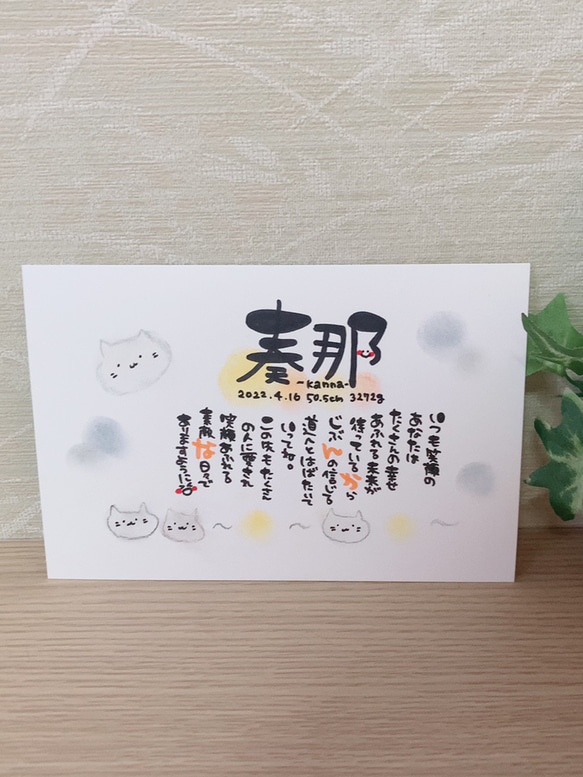 奏那
-kanna-
2022.4.16 50.5cm 3272g
いつも笑顔の
あなたは
たくさんの幸せ
あふれる未来が
待っているから
じぶんの信じる
道へとはばたいて
いってね。
この先もたくさん
の人に愛され
笑顔あふれる
素敵な日々で
ありますように